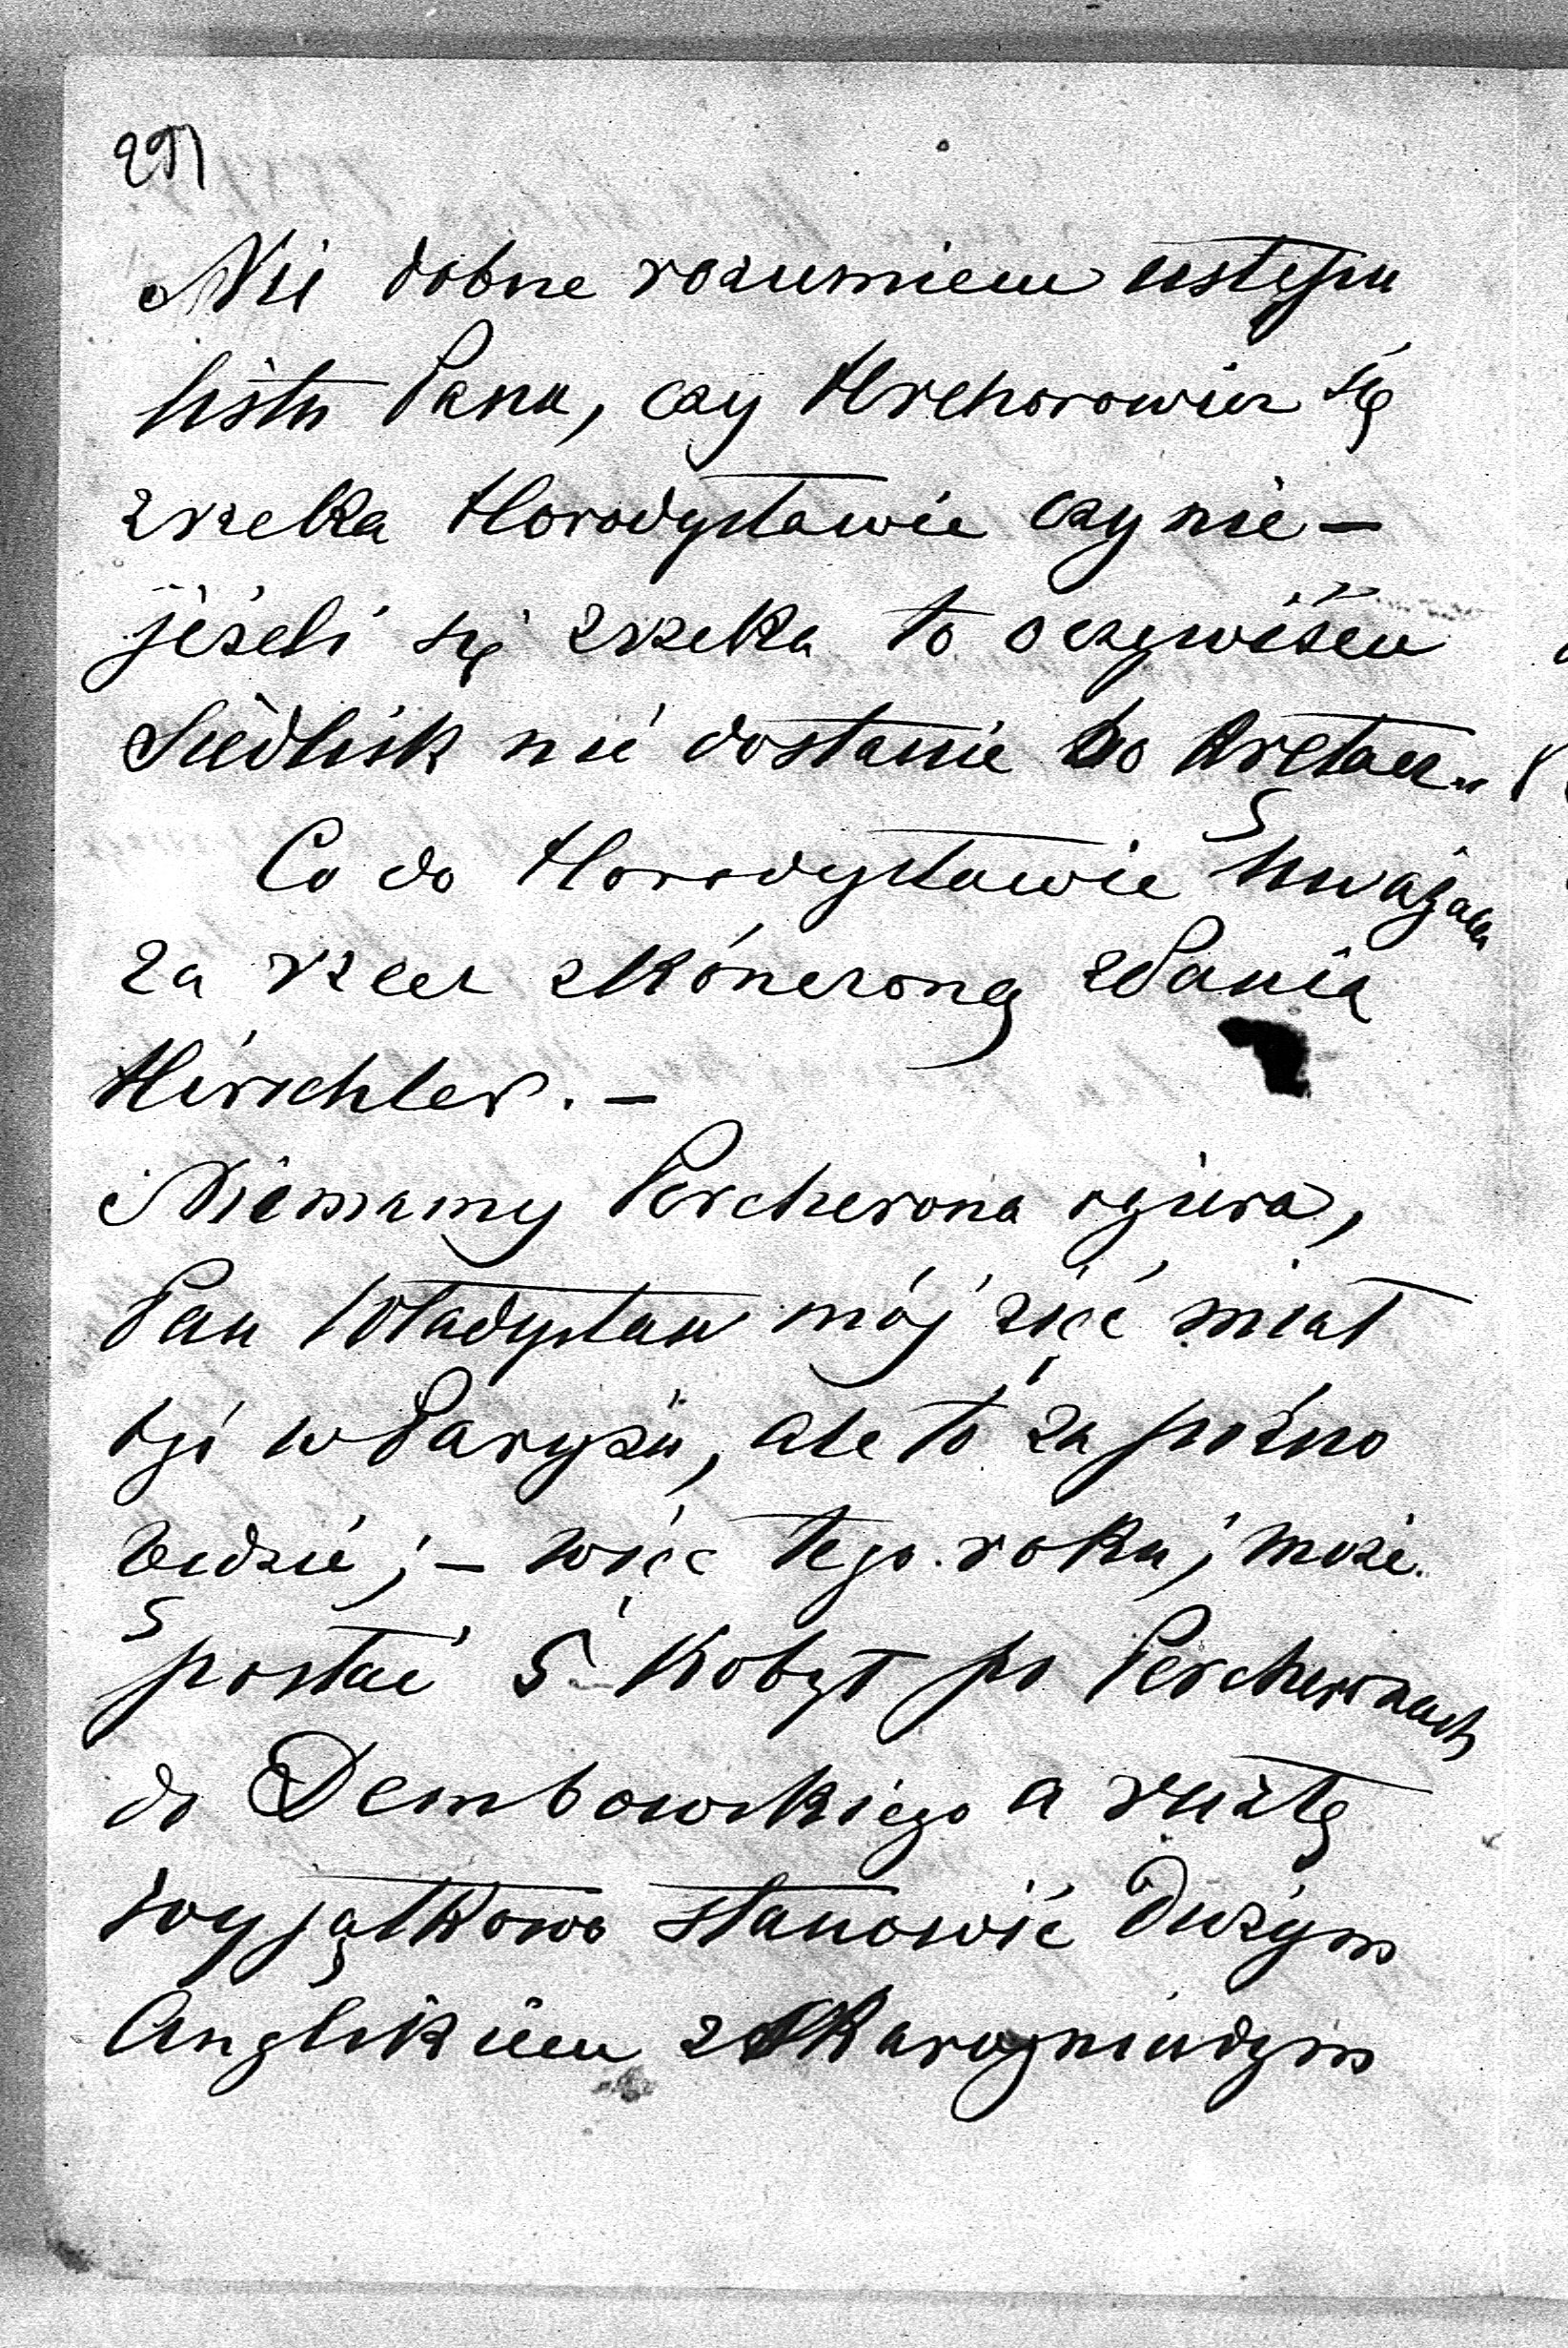 Nie dobrze rozumiem ustępu
listu Pana, czy Hrehorowicz się
zrzeka Horodysławic czy nie –
jeżeli się zrzeka to oczywiście
Siedlisk nie dostanie bo
Co do Horodysławic uważam
za rzecz zkónczoną z Panią
Hirschler. –
Niemamy Percherona ogiera,
Pan Władysław mój zięć miał
być w Paryżu, ale to za poźno
bedzie; – więc tego roku, może
posłać 5 Kobył po Percheronach
do Dembowskiego a resztę
wyjątkowo stanowić Dużym
Anglikiem Skarogniadym